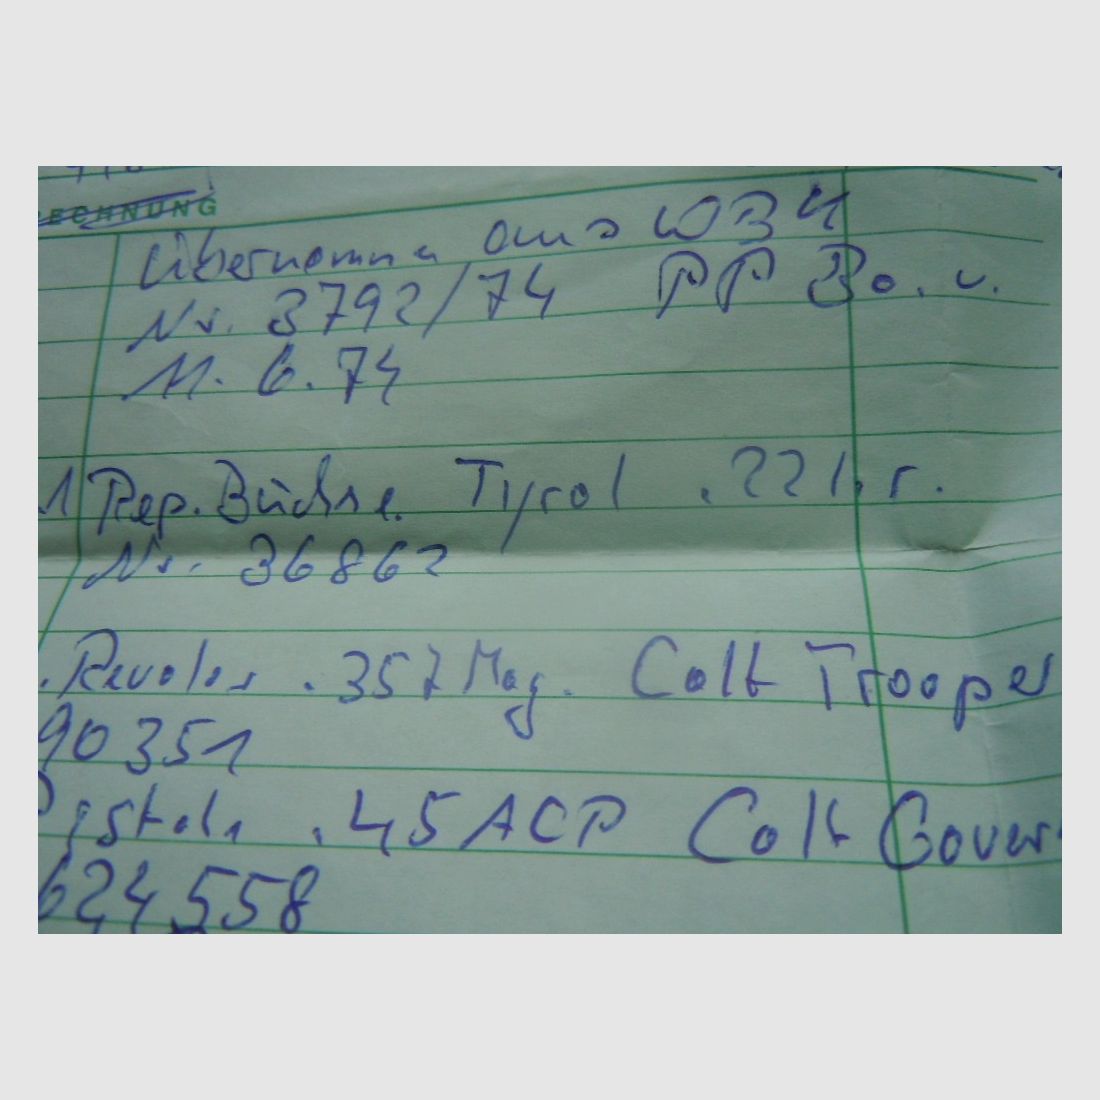 ECHNUNG
Übernommen aus WBK
Nr. 3792/74 PP Bo. v.
11. 6. 74
1 Rep. Büchse Tyrol .22 l. r.
Nr. 36862
. Revolver .357 Mag. Colt Trooper
90351
Pistole .45 ACP Colt Gover
624558